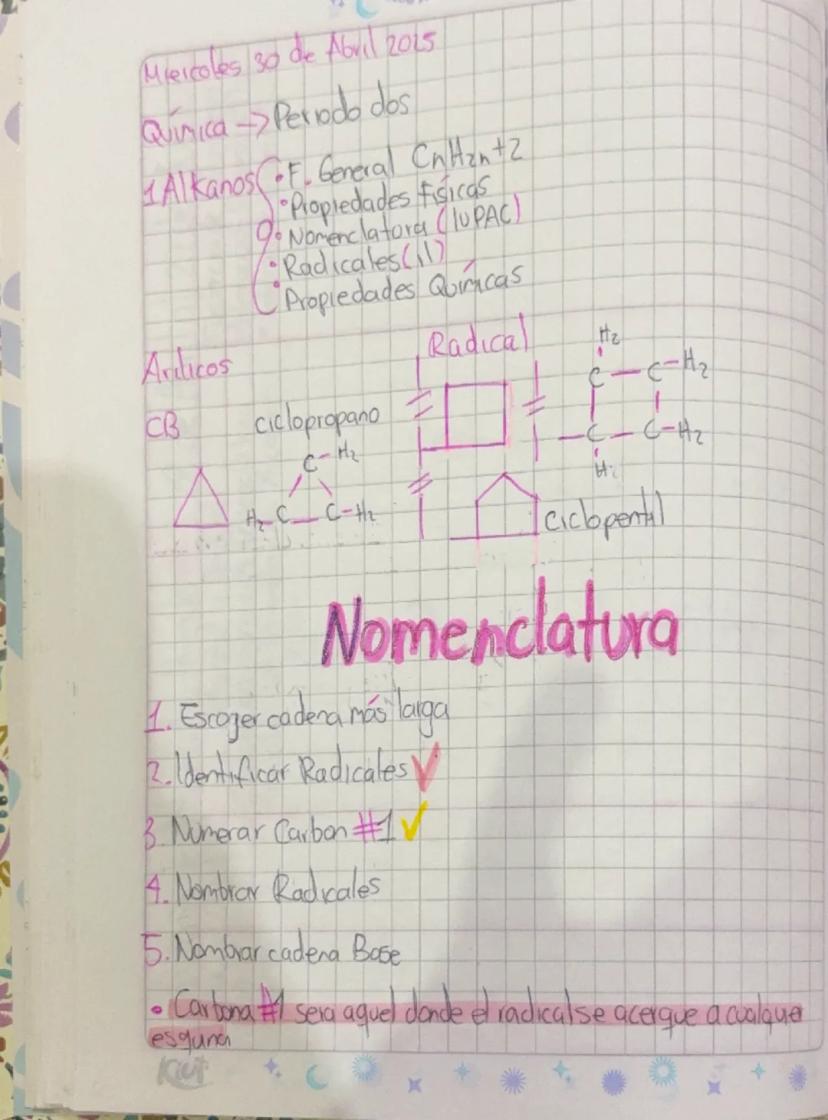 Miercoles 30 de Abril 2025
Química → Periodo dos
1 Alkanos
• F. General CnH2n+2
• Propiedades físicas
• Nomenclatura (IUPAC)
• Radicales (il)
• Propiedades Químicas
Radical
CB
ciclopropano
C-H2
H2 C — C-H2
H2
C — C-H2
— C — C-H2
H2
ciclopentil
Nomenclatura
1. Escojer cadena más larga
2. Identificar Radicales ✓
3 Numerar Carbon #1 ✓
4. Nombrar Radicales
5. Nombrar cadena Base
• Carbona #1 sera aquel donde el radical se acerque a cualquer
esquina